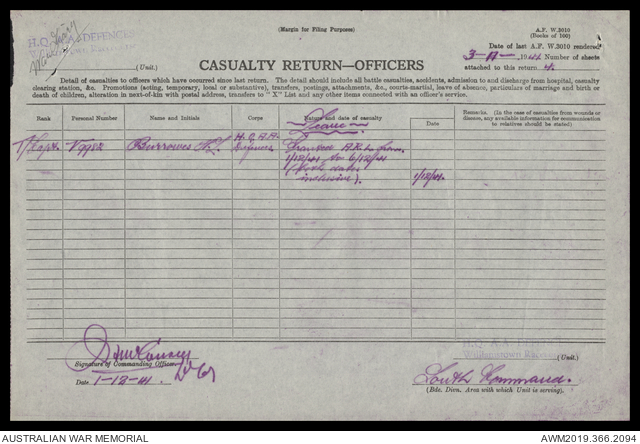 (Margin for Filing Purposes)
A.F. W.3010
(Books of 100)
H.Q. A.A. DEFENCES
Date of last A.F. W.3010 rendered
3-11- 1941 Number of sheets
(Unit.)
CASUALTY RETURN—OFFICERS
attached to this return
Detail of casualties to officers which have occurred since last return. The detail should include all battle casualties, accidents, admission to and discharge from hospital, casualty
clearing station, &c. Promotions (acting, temporary, local or substantive), transfers, postings, attachments, &c., courts-martial, leave of absence, particulars of marriage and birth or
death of children, alteration in next-of-kin with postal address, transfers to "X" List and any other items connected with an officer's service.
Rank Personal Number Name and Initials Corps Nature and date of casualty Date Remarks. (In the case of casualties from wounds or disease, any available information for communication to relatives should be stated)
Leave
T/Capt. Burrowes H.Q. A.A. Defences Granted
1/12/41 to 6/12/41
(both dates
inclusive). 1/12/41.
H.Q. A.A. DEFENCES
Williamstown
Signature of Commanding Officer
(Unit.)
Date 1-12-41
South Command.
(Bde. Divn. Area with which Unit is serving).
AUSTRALIAN WAR MEMORIAL
AWM2019.366.2094